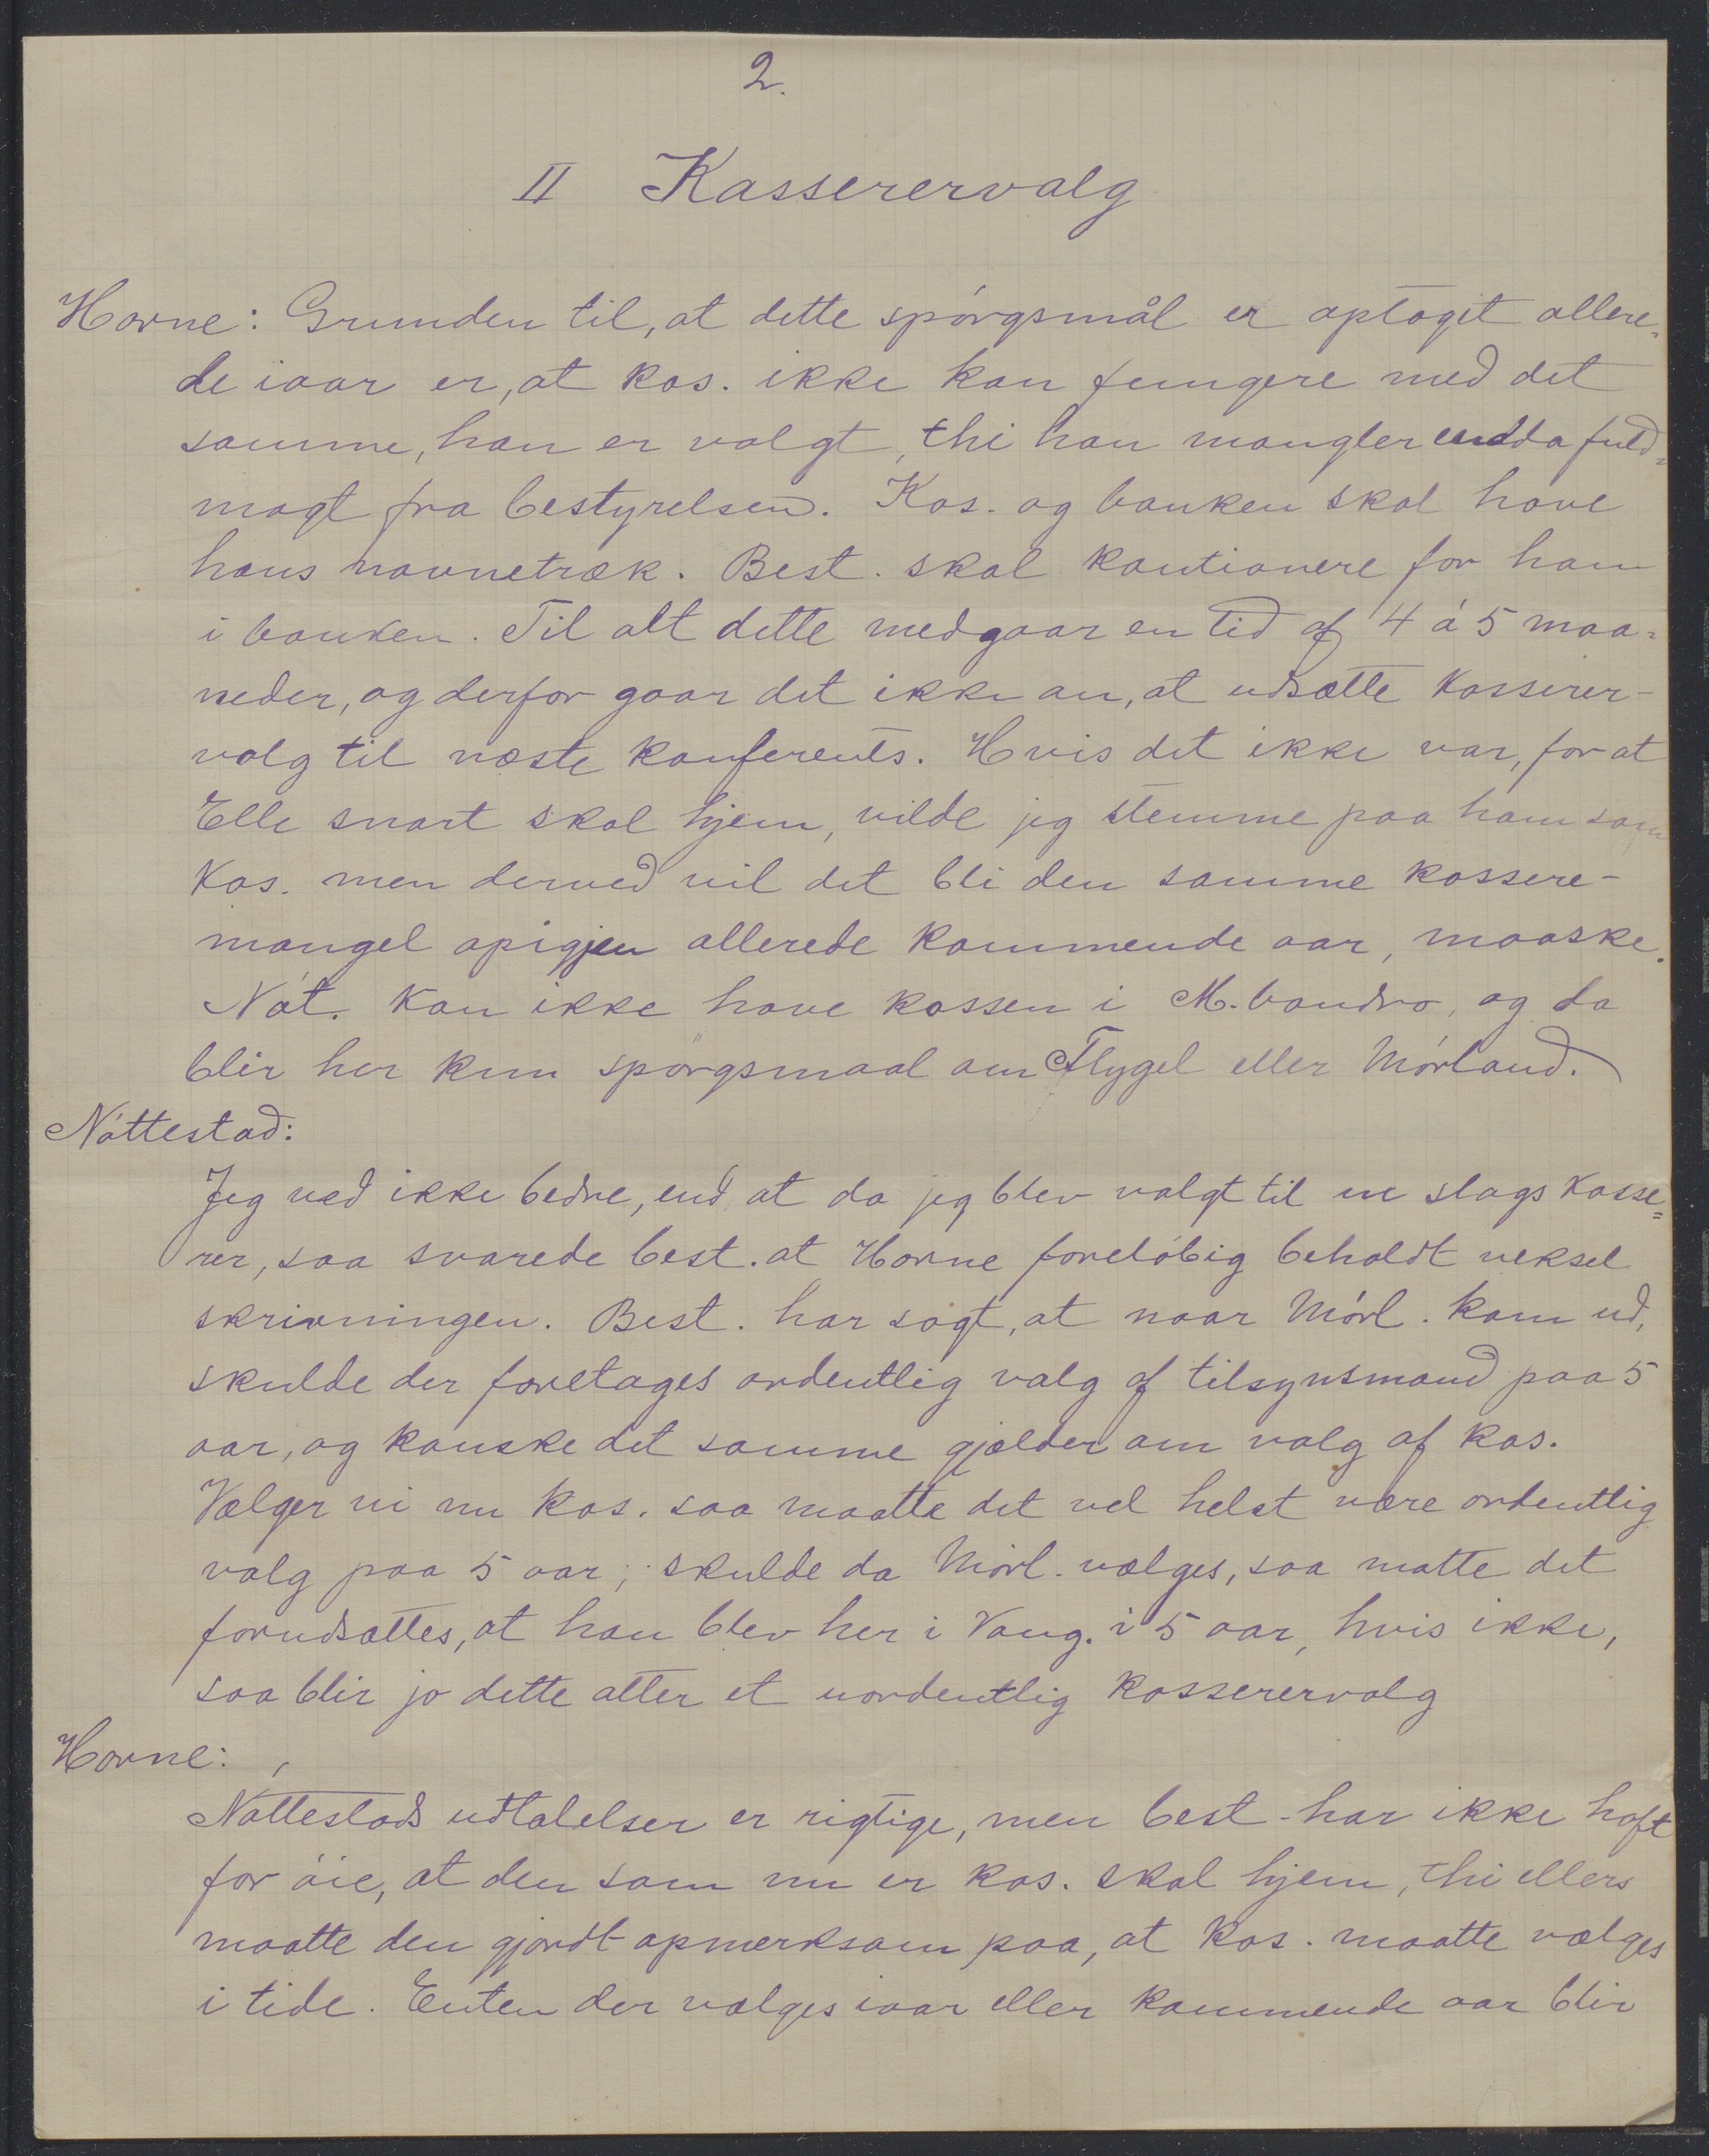 2.
II Kasserervalg
Horne: Grunden til, at dette spórgsmål er optaget allere=
de iaar er, at kas. ikke kan fungere med det
samme, han er valgt, thi han mangler endda fuld=
magt fra bestyrelsen. Kas. og banken skal have
hans navnetræk. Best. skal kautionere for ham
i banken. Til alt dette medgaar en tid af 4 á 5 maa=
neder, og derfor gaar det ikke an, at udsætte kasserer-
valg til næste konferents. Hvis det ikke var, for at
Elle snart skal hjem, vilde jeg stemme paa ham som
Kas. men derved vil det bli den samme kassere-
mangel opigjen allerede kommende aar, maaske.
Nót. kan ikke have kassen i M.bandro, og da
blir her kun spörgsmaal om Flygel eller Mórland.
Nóttestad:
Jeg ved ikke bedre, end at da jeg blev valgt til en slags kasse=
rer, saa svarede best. at Horne forelóbig beholdt veksel
skrivningen. Best. har sagt, at naar Mórl. kom ud,
skulde der foretages ordentlig valg af tilsynsmand paa 5
aar, og kanske det samme gjælder om valg af kas.
Vælger vi nu kas. saa maatte det vel helst være ordentlig
valg paa 5 aar; skulde da Mórl. vælges, saa matte det
forudsættes, at han blev her i Vang. i 5 aar, hvis ikke,
saa blir jo dette atter et uordentlig kasserervalg
Horne:
Nóttestads udtalelser er rigtige, men best. har ikke haft
for óie, at den som nu er kas. skal hjem, thi ellers
maatte den gjordt opmerksom paa, at kas. maatte vælges
i tide. Enten der vælges iaar eller kommende aar blir